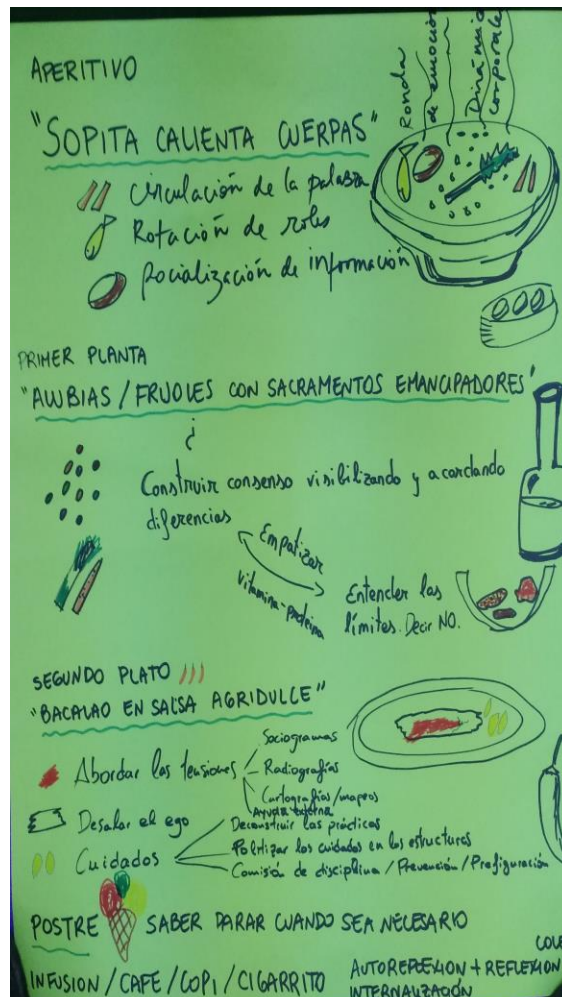 APERITIVO
Ronda
de emoción
Dinámica
corporales
"SOPITA CALIENTA CUERPAS"
Circulación de la palabra
Rotación de roles
Socialización de información
PRIMER PLANTA
"ALUBIAS / FRIJOLES CON SACRAMENTOS EMANCIPADORES"
¿
Construir consenso visibilizando y acordando
diferencias
Empatizar
vitamina-proteina
Entender los
límites. Decir NO.
SEGUNDO PLATO
"BACALAO EN SALSA AGRIDULCE"
Abordar las tensiones
Sociogramas
Radiografías
Cartografías/mapeos
Ayuda externa
Desalar el ego
Deconstruir las prácticas
Cuidados
Politizar los cuidados en las estructuras
Comisión de disciplina / Prevención / Prefiguración
POSTRE SABER PARAR CUANDO SEA NECESARIO
INFUSION / CAFE / COPI / CIGARRITO
AUTOREFLEXION + REFLEXION COLE
INTERNALIZACIÓN